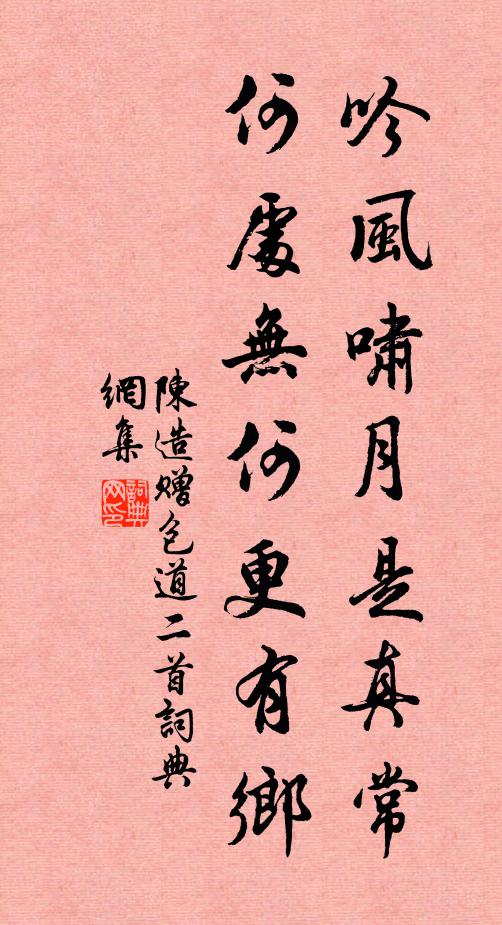 吟風嘯月是真常
何處無何更有鄉
陳造贈包道二首詞典
網集
詞典网印